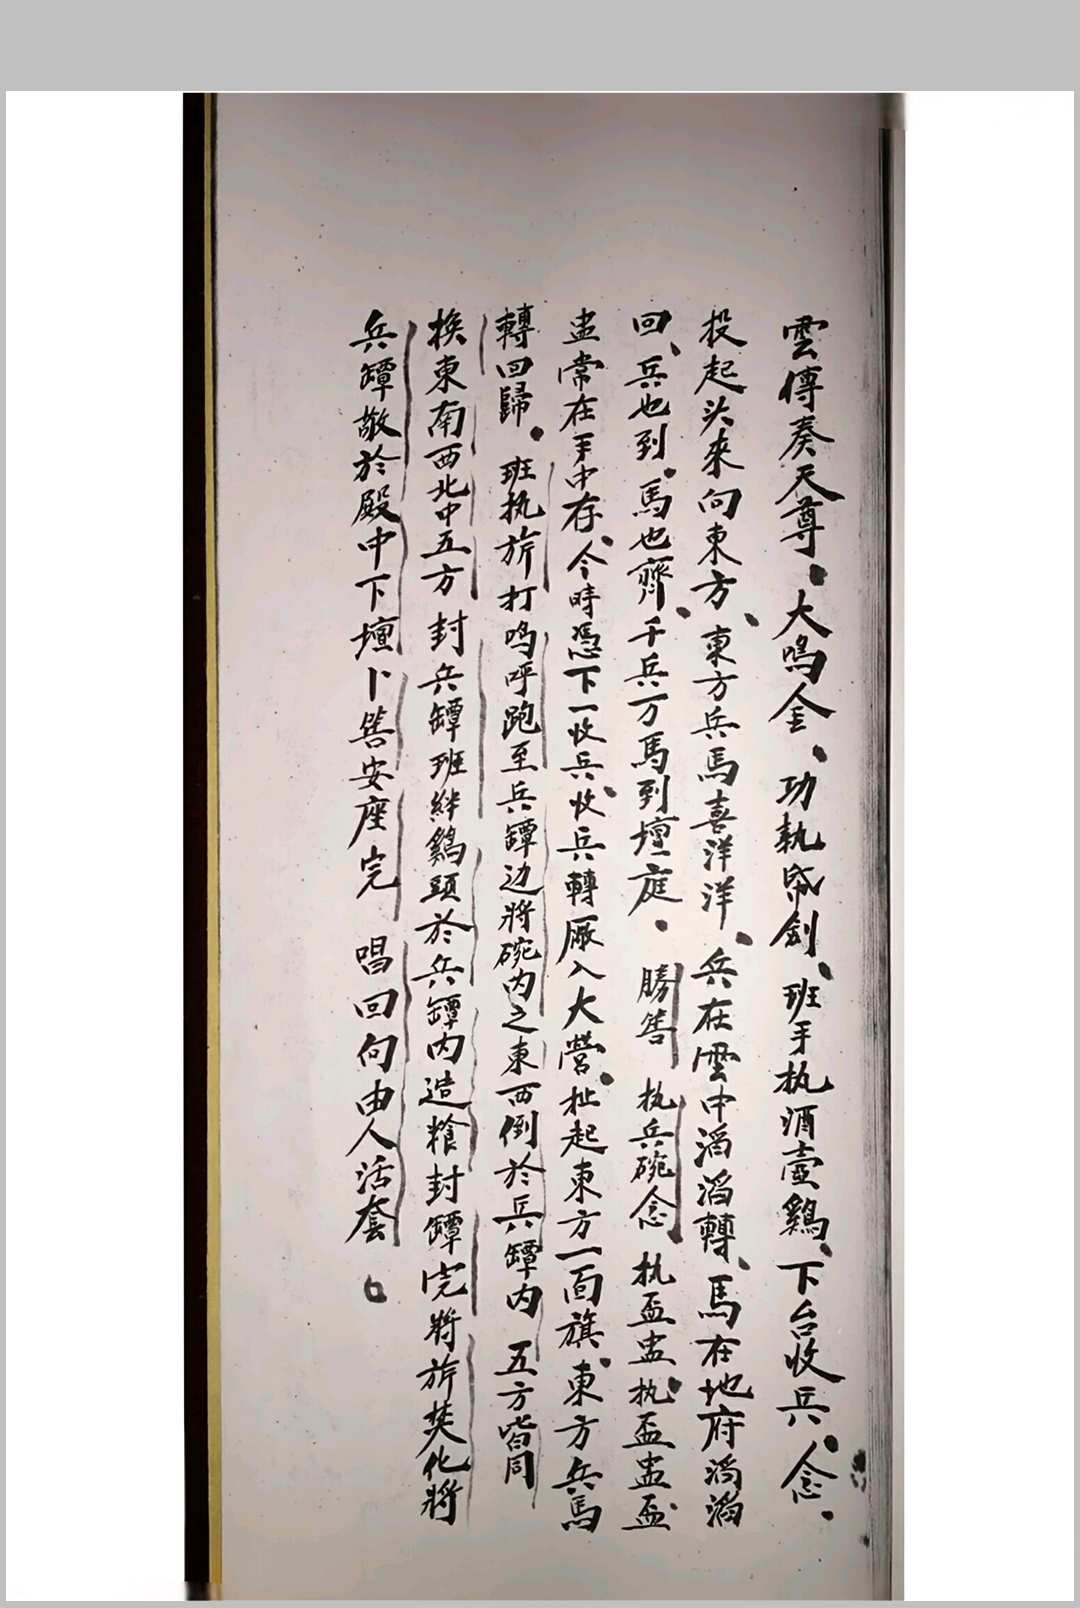 雲傳奏天尊。大鳴金、功執帋劍、班手执酒壺鷄、下台收兵、念.
投起头來向東方、東方兵馬喜洋洋、兵在雲中滔滔轉、馬在地府滔滔
回、兵也到.馬也齊、千兵万馬到壇庭. 勝筶 执兵碗念 执盃盅执盃盅盃
盅常在手中存、今時憑下一收兵、收兵轉厰入大營.扯起東方一面旗、東方兵馬
轉回歸. 班执旂打鸣呼跑至兵罈边將碗内之東西倒於兵罈内 五方皆同
换東南西北中五方 封兵罈班絆鷄頭於兵罈内造粮封罈完將旂焚化將
兵罈敬於殿中下壇卜筶安座完 唱回向由人活套